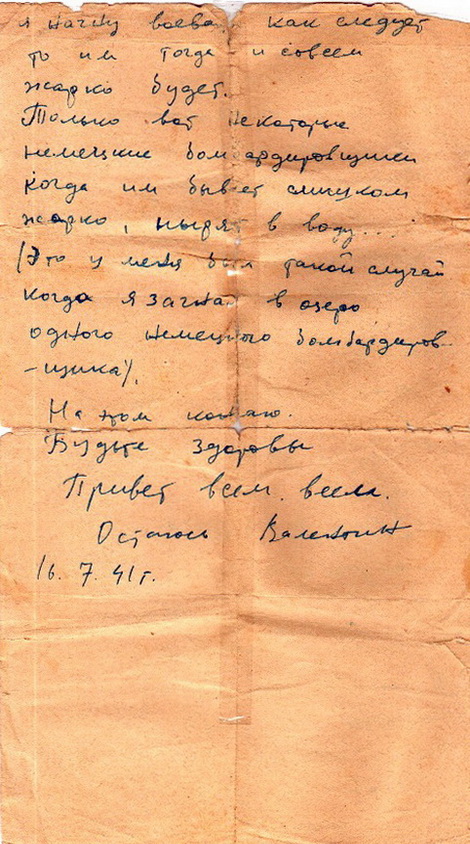 я начну воевать как следует
то им тогда и совсем
жарко будет.
Только вот некоторые
немецкие бомбардировщики
когда им бывает слишком
жарко, ныряют в воду...
(Это у меня был такой случай
когда я загнал в озеро
одного немецкого бомбардиров-
-щика).
На этом кончаю.
Будьте здоровы
Привет всем, всем.
Остаюсь Валентин
16.7.41г.